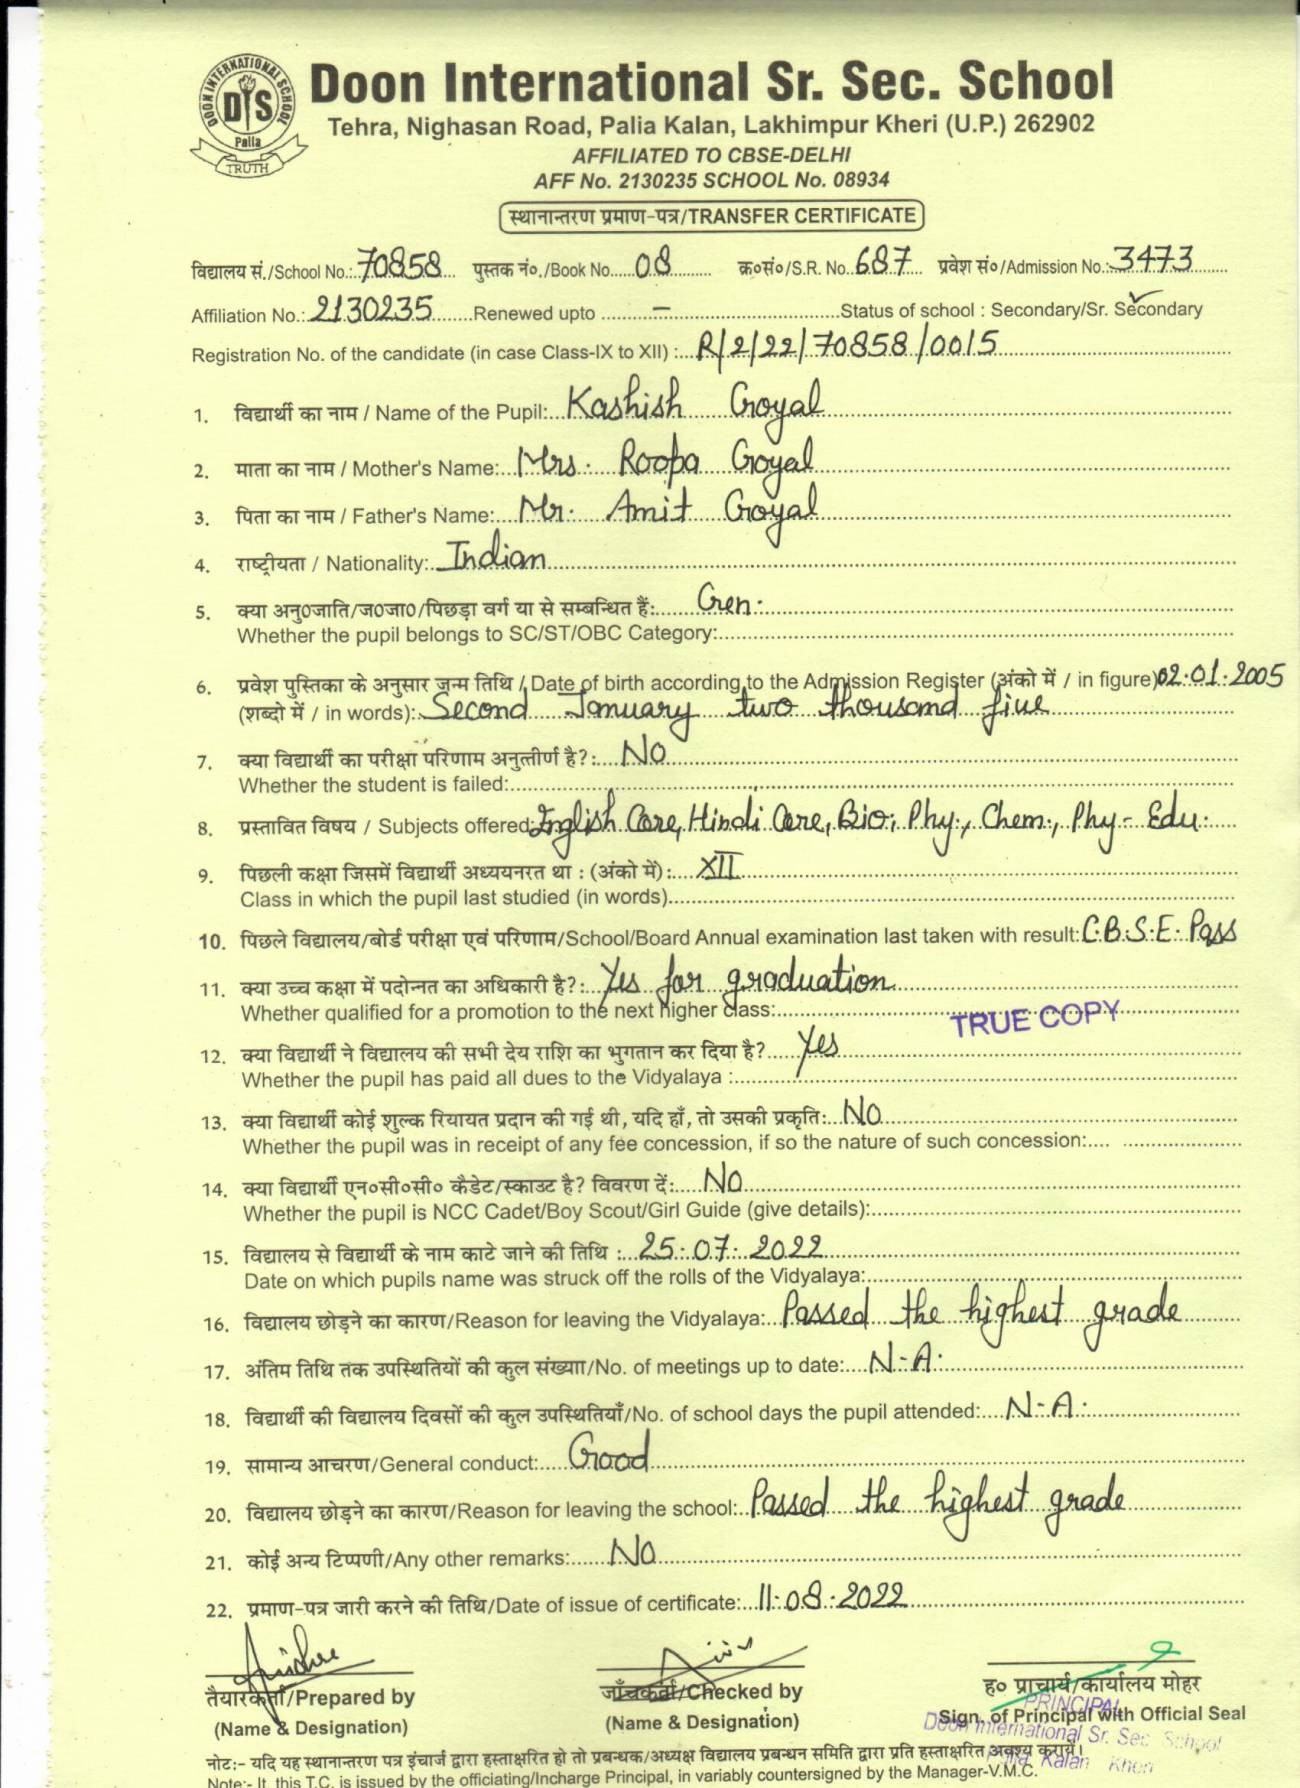 DOON INTERNATIONAL SCHOOL
DIS
Palia
TRUTH
Doon International Sr. Sec. School
Tehra, Nighasan Road, Palia Kalan, Lakhimpur Kheri (U.P.) 262902
AFFILIATED TO CBSE-DELHI
AFF No. 2130235 SCHOOL No. 08934
स्थानान्तरण प्रमाण-पत्र/TRANSFER CERTIFICATE
विद्यालय सं./School No.: 70858 पुस्तक नं०./Book No. 08 क्र०सं०/S.R. No. 687 प्रवेश सं०/Admission No.: 3473
Affiliation No.: 2130235 Renewed upto – Status of school : Secondary/Sr. Secondary
Registration No. of the candidate (in case Class-IX to XII) : R/2/22/70858/0015
1. विद्यार्थी का नाम / Name of the Pupil: Kashish Goyal
2. माता का नाम / Mother's Name: Mrs. Roopa Goyal
3. पिता का नाम / Father's Name: Mr. Amit Goyal
4. राष्ट्रीयता / Nationality: Indian
5. क्या अनु0जाति/ज0जा0/पिछड़ा वर्ग या से सम्बन्धित हैं: Gen.
Whether the pupil belongs to SC/ST/OBC Category:
6. प्रवेश पुस्तिका के अनुसार जन्म तिथि / Date of birth according to the Admission Register (अंको में / in figure) 02.01.2005
(शब्दो में / in words): Second January two thousand five
7. क्या विद्यार्थी का परीक्षा परिणाम अनुत्तीर्ण है?: No
Whether the student is failed:
8. प्रस्तावित विषय / Subjects offered: English Core, Hindi Core, Bio., Phy., Chem., Phy-Edu.
9. पिछली कक्षा जिसमें विद्यार्थी अध्ययनरत था : (अंको में): XII
Class in which the pupil last studied (in words)
10. पिछले विद्यालय/बोर्ड परीक्षा एवं परिणाम/School/Board Annual examination last taken with result: C.B.S.E. Pass
11. क्या उच्च कक्षा में पदोन्नत का अधिकारी है?: Yes for graduation
Whether qualified for a promotion to the next higher class:
TRUE COPY
12. क्या विद्यार्थी ने विद्यालय की सभी देय राशि का भुगतान कर दिया है? Yes
Whether the pupil has paid all dues to the Vidyalaya :
13. क्या विद्यार्थी कोई शुल्क रियायत प्रदान की गई थी, यदि हाँ, तो उसकी प्रकृति: No
Whether the pupil was in receipt of any fee concession, if so the nature of such concession:
14. क्या विद्यार्थी एन०सी०सी० कैडेट/स्काउट है? विवरण दें: No
Whether the pupil is NCC Cadet/Boy Scout/Girl Guide (give details):
15. विद्यालय से विद्यार्थी के नाम काटे जाने की तिथि : 25.07.2022
Date on which pupils name was struck off the rolls of the Vidyalaya:
16. विद्यालय छोड़ने का कारण/Reason for leaving the Vidyalaya: Passed the highest grade
17. अंतिम तिथि तक उपस्थितियों की कुल संख्याा/No. of meetings up to date: N.A.
18. विद्यार्थी की विद्यालय दिवसों की कुल उपस्थितियाँ/No. of school days the pupil attended: N.A.
19. सामान्य आचरण/General conduct: Good
20. विद्यालय छोड़ने का कारण/Reason for leaving the school: Passed the highest grade
21. कोई अन्य टिप्पणी/Any other remarks: No
22. प्रमाण-पत्र जारी करने की तिथि/Date of issue of certificate: 11.08.2022
तैयारकर्ता/Prepared by जाँचकर्ता/Checked by ह० प्राचार्य/कार्यालय मोहर
(Name & Designation) (Name & Designation) Sign. of Principal with Official Seal
PRINCIPAL
Doon International Sr. Sec. School
Palia Kalan Kheri
नोटः- यदि यह स्थानान्तरण पत्र इंचार्ज द्वारा हस्ताक्षरित हो तो प्रबन्धक/अध्यक्ष विद्यालय प्रबन्धन समिति द्वारा प्रति हस्ताक्षरित अवश्य करायें।
Note:- It, this T.C. is issued by the officiating/Incharge Principal, in variably countersigned by the Manager-V.M.C.